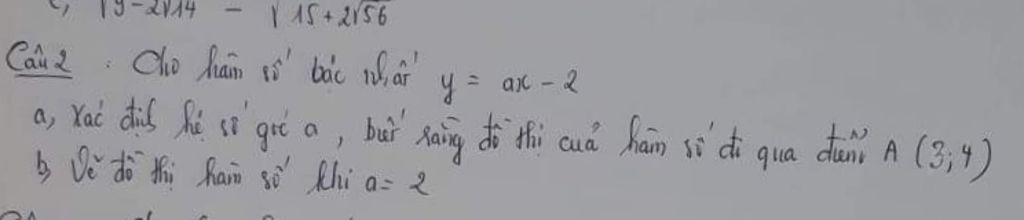 c, √9-2√14 - √15+2√56
Câu 2. Cho hàm số bậc nhất y = ax - 2
a, Xác định hệ số góc a, biết rằng đồ thị của hàm số đi qua điểm A (3; 4)
b, Vẽ đồ thị hàm số khi a = 2